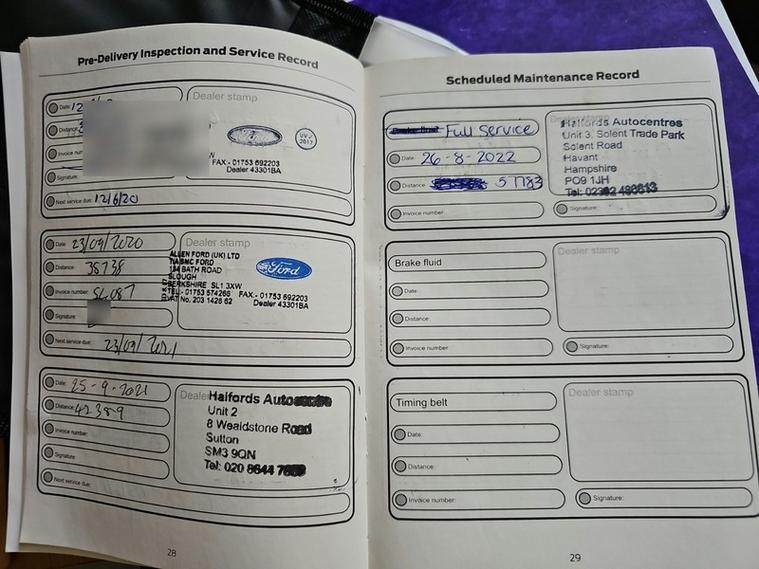 Pre-Delivery Inspection and Service Record
Date:
Distance:
Invoice num
Signature:
Next service due: 12/6/20
Dealer stamp
Ford
FAX - 01753 692203
Dealer 43301BA
Date: 23/09/2020
Distance: 38738
Invoice number:
Signature:
Next service due: 23/09/2021
Dealer stamp
ALLEN FORD (UK) LTD
T/A SMC FORD
BATH ROAD
SLOUGH
BERKSHIRE SL1 3XW
TEL - 01753 574266 FAX - 01753 692203
VAT No. 203 1428 62 Dealer 43301BA
Ford
Date: 25-9-2021
Distance: 42389
Invoice number:
Signature:
Next service due:
Dealer
Halfords Autocentre
Unit 2
8 Wealdstone Road
Sutton
SM3 9QN
Tel: 020 8644
28
Scheduled Maintenance Record
Full Service
Date: 26-8-2022
Distance: 51783
Invoice number:
Halfords Autocentres
Unit 3, Solent Trade Park
Solent Road
Havant
Hampshire
PO9 1JH
Tel:
Signature:
Brake fluid
Date:
Distance:
Invoice number:
Dealer stamp
Signature:
Timing belt
Date:
Distance:
Invoice number:
Dealer stamp
Signature:
29